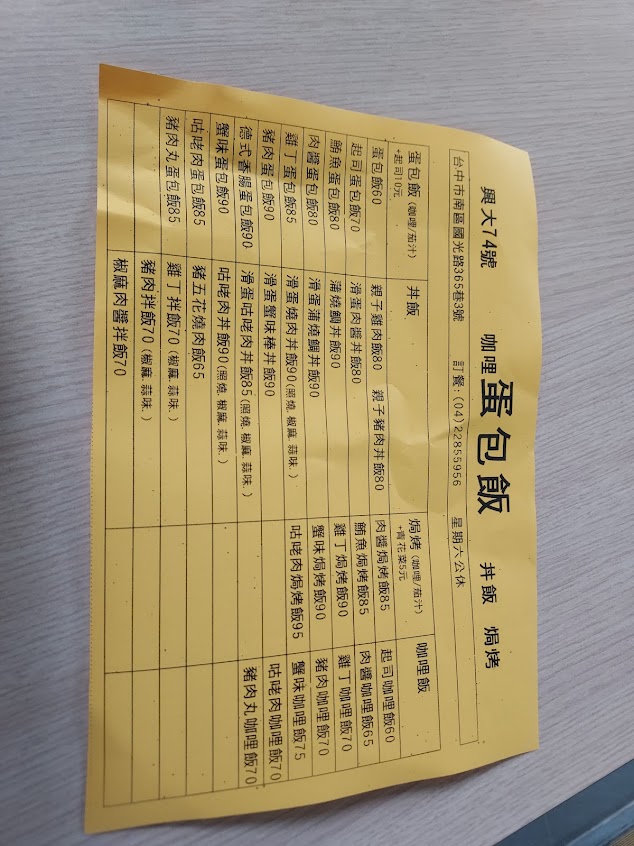 興大74號 咖哩蛋包飯 丼飯 焗烤
台中市南區國光路365巷3號 訂餐:(04)22855956 星期六公休
蛋包飯(咖哩/茄汁)
+起司10元
蛋包飯60
起司蛋包飯70
鮪魚蛋包飯80
肉醬蛋包飯80
雞丁蛋包飯85
豬肉蛋包飯90
德式香腸蛋包飯90
蟹味蛋包飯90
咕咾肉蛋包飯85
豬肉丸蛋包飯85
丼飯
親子雞肉飯80 親子豬肉丼飯80
滑蛋肉醬丼飯80
蒲燒鯛丼飯90
滑蛋蒲燒鯛丼飯90
滑蛋燒肉丼飯90(照燒.椒麻.蒜味.)
滑蛋蟹味棒丼飯90
滑蛋咕咾肉丼飯85(照燒.椒麻.蒜味.)
咕咾肉丼飯90(照燒.椒麻.蒜味.)
豬五花燒肉飯65
雞丁拌飯70(椒麻.蒜味.)
豬肉拌飯70(椒麻.蒜味.)
椒麻肉醬拌飯70
焗烤(咖哩/茄汁)
+青花菜5元
肉醬焗烤飯85
鮪魚焗烤飯85
雞丁焗烤飯90
蟹味焗烤飯90
咕咾肉焗烤飯95
咖哩飯
起司咖哩飯60
肉醬咖哩飯65
雞丁咖哩飯70
豬肉咖哩飯70
蟹味咖哩飯75
咕咾肉咖哩飯70
豬肉丸咖哩飯70